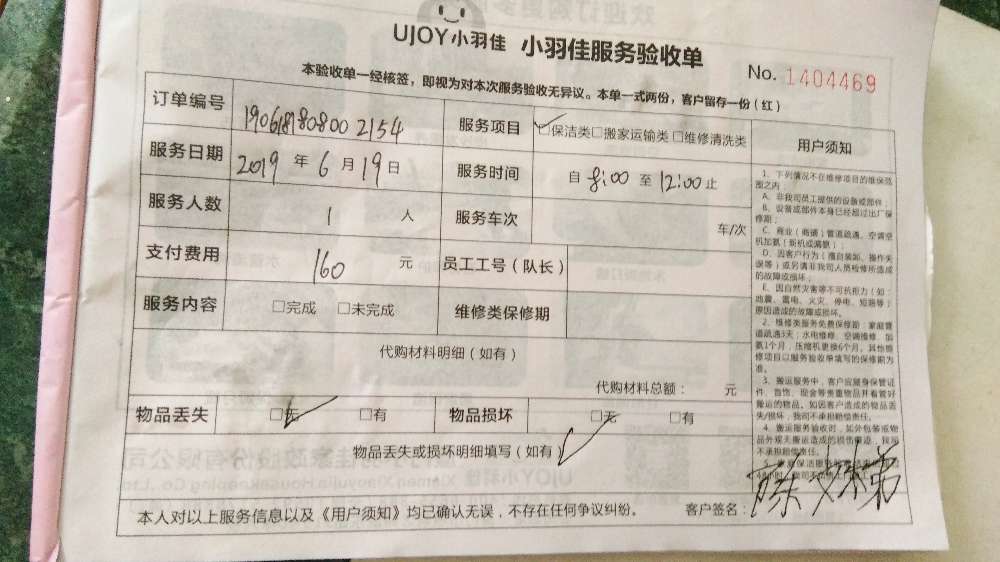 UJOY小羽佳 小羽佳服务验收单
No. 1404469
本验收单一经核签，即视为对本次服务验收无异议。本单一式两份，客户留存一份（红）
订单编号 190618180800 2154 服务项目 ☑保洁类□搬家运输类□维修清洗类 用户须知
服务日期 2019 年 6 月 19 日 服务时间 自 8:00 至 12:00 止
服务人数 1 人 服务车次 车/次
支付费用 160 元 员工工号（队长）
服务内容 □完成 □未完成 维修类保修期
代购材料明细（如有）
代购材料总额： 元
物品丢失 ☑无 □有 物品损坏 ☑无 □有
物品丢失或损坏明细填写（如有
本人对以上服务信息以及《用户须知》均已确认无误，不存在任何争议纠纷。 客户签名：
1、下列情况不在维修项目的维保范
围之内：
A、非我司员工提供的设备或部件；
B、设备或部件本身已经超过出厂保
修期；
C、商业（商铺）管道疏通、空调空
机加氨（新机或漏氨）；
D、因客户行为（擅自装卸、操作失
误等）或另请非我司人员检修所造成
的故障或损坏；
E、因自然灾害等不可抗拒力（如：
地震、雷电、火灾、停电、短路等）
原因造成的故障或损坏。
2、维修类服务免费保修期：家庭管
道疏通3天；水电维修、空调维修、加
氨1个月，压缩机更换6个月。其他维
修项目以服务验收单填写的保修期为
准。
3、搬运服务中，客户应随身保管证
件、首饰、现金等贵重物品并看管好
搬运的物品。如因客户造成的物品丢
失/损坏，我司不承担赔偿责任。
4、搬运服务验收时，如外包装或物
品外观无搬运造成的损伤痕迹，我司
不承担赔偿责任。